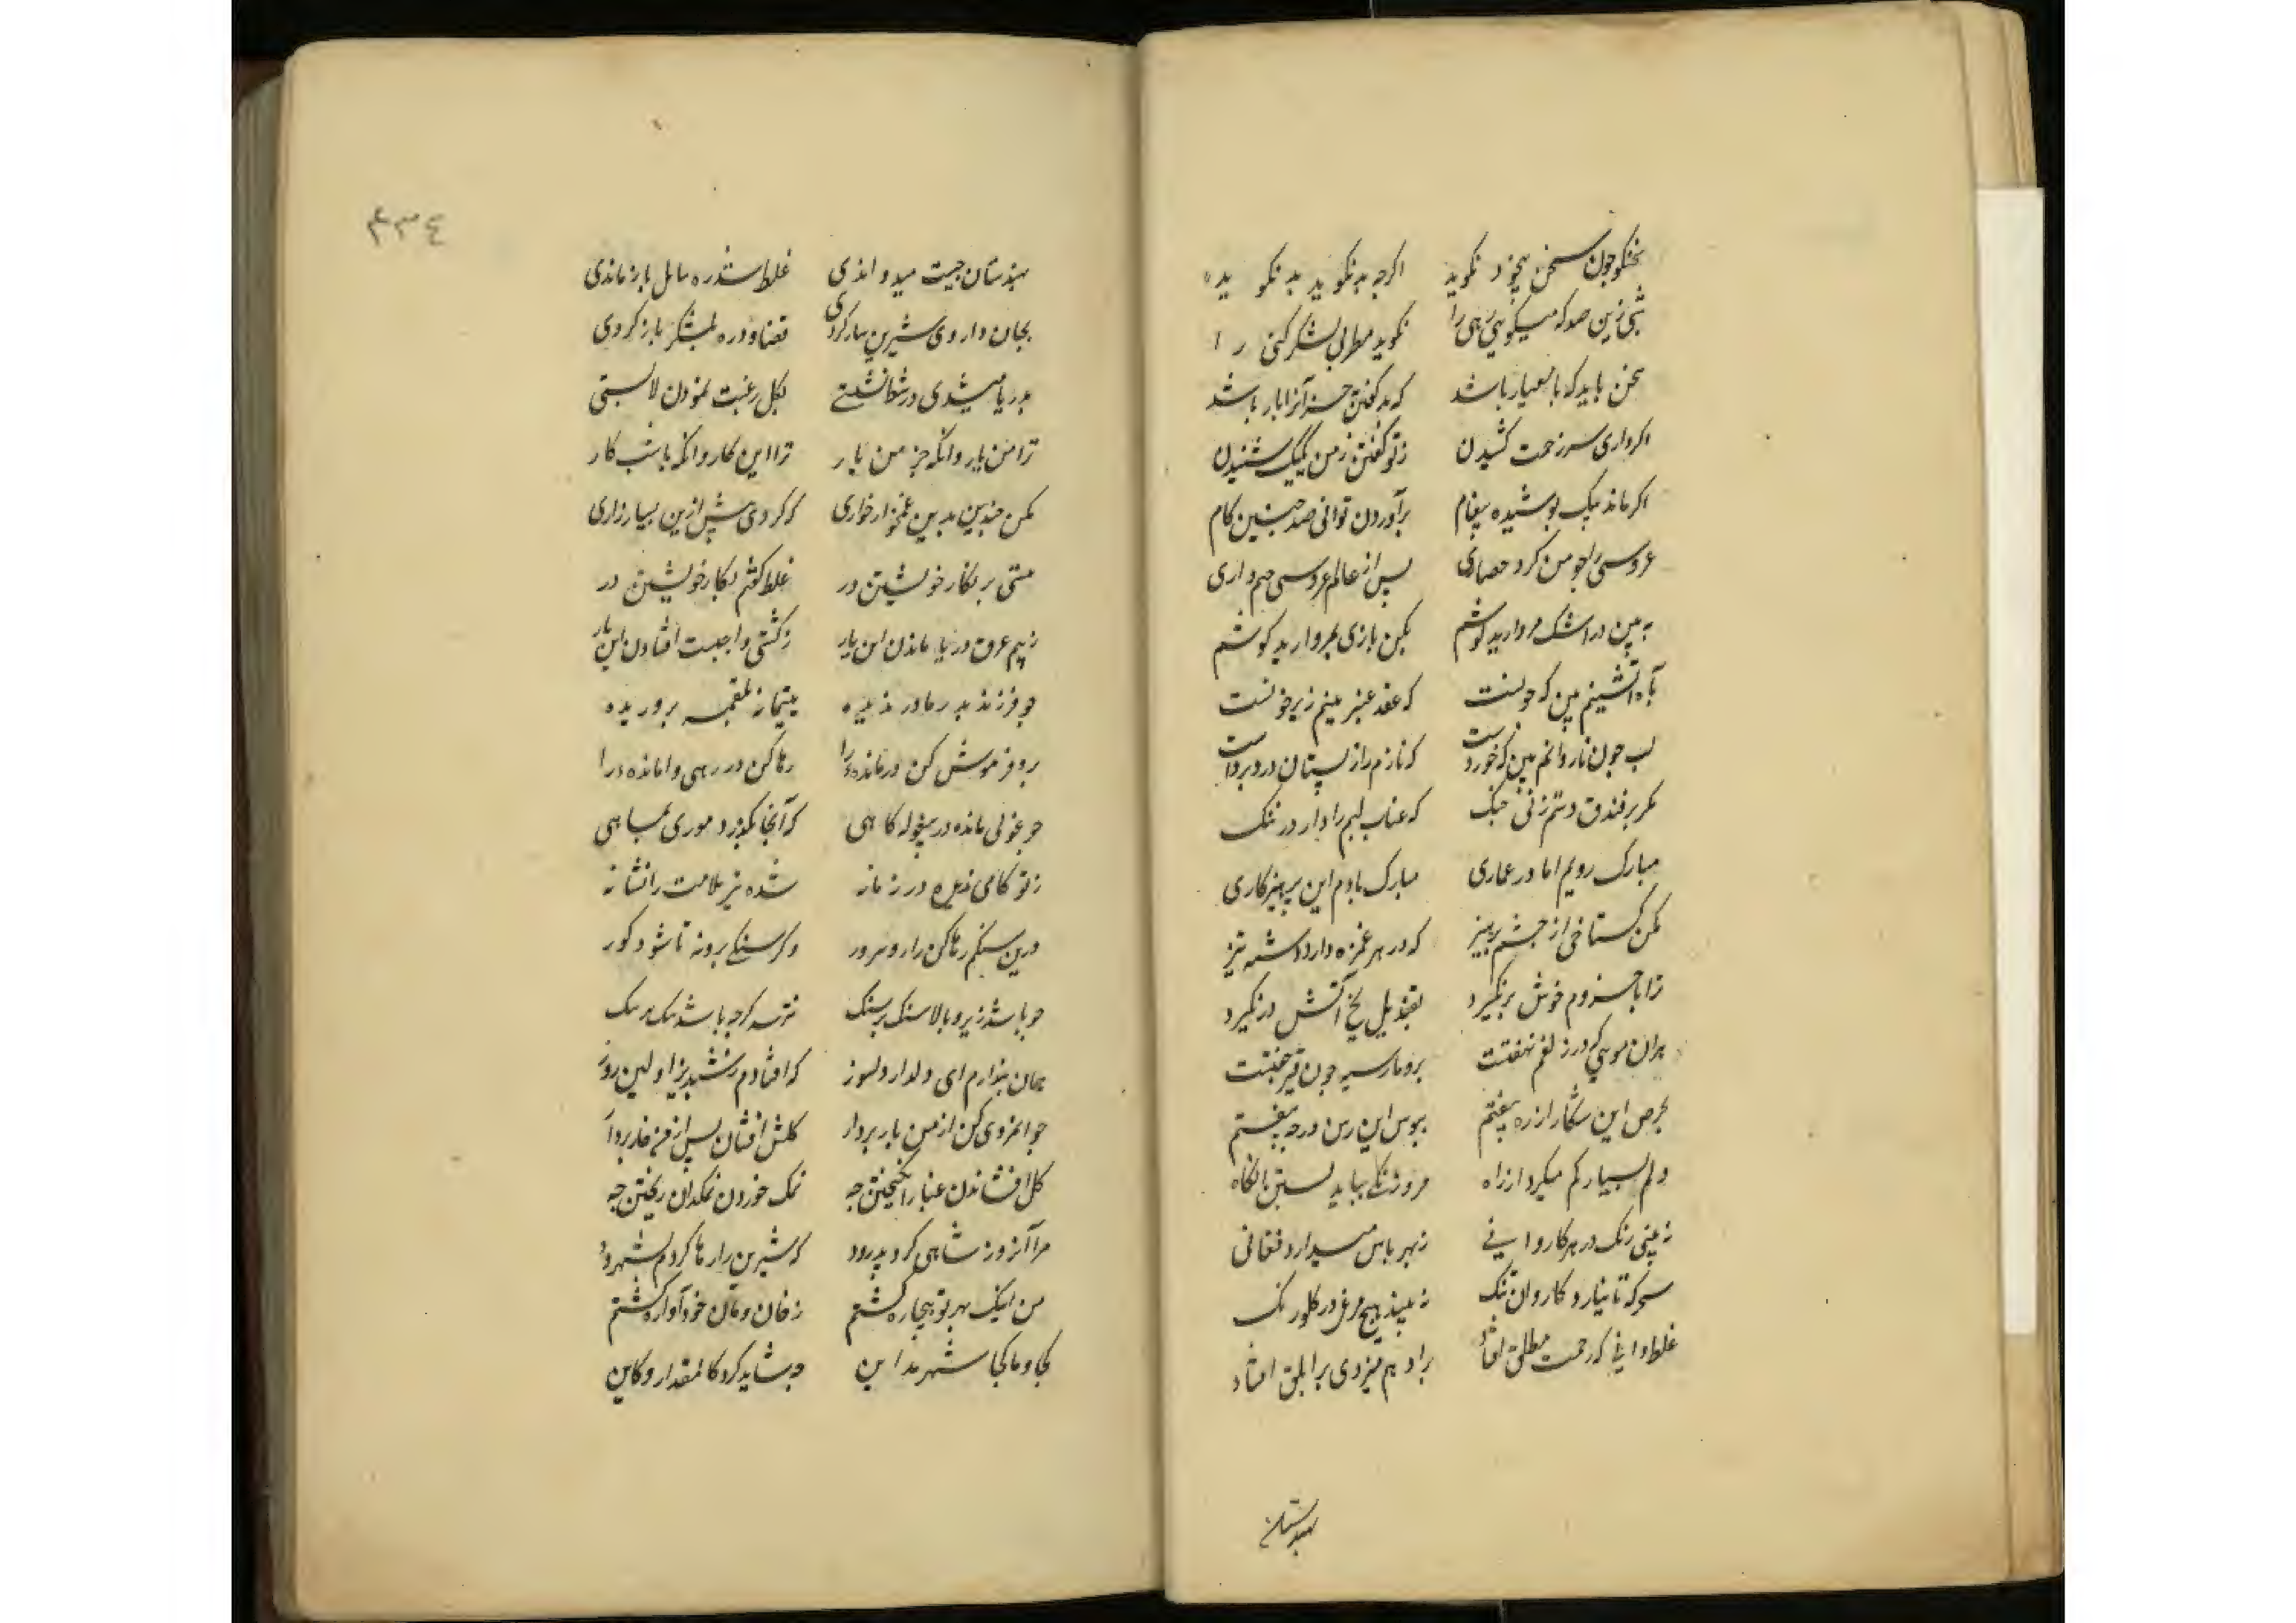 سخنگو چون سخن بیخود نگوید اگرچه بد نگوید بد نگوید
سخن باید که با معیار باشد که بد گفتن خر آنرا بار باشد
اگر داری سر زحمت کشیدن ز تو گفتن ز من یکیک شنیدن
اگر ماند بیک بوشیده پیغام برآوردن توانی صد چنین کام
عروسی را جو من کرد حصاری بس از عالم عروسی چم داری
به بین در اشک مروارید بوشم مکن بازی بمروارید کوشم
بآه آتشینم بین که جونست که عقد عنبرینم زیر خونست
لب جون ناردانم بین که خوردست که نارم را ز بستان درد بردست
مگر بر فندق دستم زنی جنک که عناب لبم را دارد در تنک
مبارک رویم اما در عماری مبارک بادم این برهیزکاری
مکن کستاخی از جشم ببرهیز که در هر غمزه دارد دشنه تیز
ترا با من دم خوش در نگیرد بقندیل یخ آتش در نگیرد
هران مویی که در زلفم نهفتست برو مار سیه جون قیر خفتست
بحرص این شکار از ره بیفتم بیوس این رسن در جه بیفتم
دلم بسیار کم میکردد از راه
نه بینی زنک در هر کاروانی ز بهر باس میدارد فغانی
سحر که تا نیارد کاروان تنک نه بیند هیچ مرغ در کلو زنک
غلط رانی که زحمت مطلق افتاد بر ادهم میزدی بر ابلق افتاد
بهندستان
٤٣٤
بهندستان جنیبت میدواندی غلط شد ره ببابل باز ماندی
بجان داروی شیرین ساز کردی قضا در ره بشکر باز کردی
بدریا میشدی در شط نشستی بکل رغبت نمودن لاله بستی
ترا من یار و آنکه جز من یار ترا این کار و آنکه باشت کار
مکن جندین بدین غمخوار خواری که کردی بیش ازین بسیار زاری
منی بر بکار خویشتن در غلط گفتم بکار خویشتن در
ز بیم غرق دریا ماندن این بار ز کشتی واجبست افتادن این بار
جو فرزند بدر مادر ندیده یتیمانه بلقمه بروریده
برو فرموش کن درمانده را رها کن در رهی وامانده را
جو غولی مانده در بیغوله کاهی که آنجا نکذرد موری بماهی
ز تو کامی ندیده در زمانه شده تیر ملامت را نشانه
درین سنکم رها کن زار و مرور دگر سنگی برو نه تا شود کور
جو باشد زیر و بالا سنک بر سنک
همان بندارم ای دلدار دلسوز که افتادم ز شبدیز اولین روز
جوانمردی کن از من بار بردار کلش افشان بس از من خار بردار
کل افشاندن غبار انگیختن جه نمک خوردن نمکدان ریختن جه
مرا آنروز شاهی کرد بدرود که شیرین را رها کردم بشهرود
من اینک بهر تو بیجاره گشتم ز خان و مان خود آواره گشتم
کجا و ما کجا شهر مداین جه شاید کرد کالمقدار و کاین